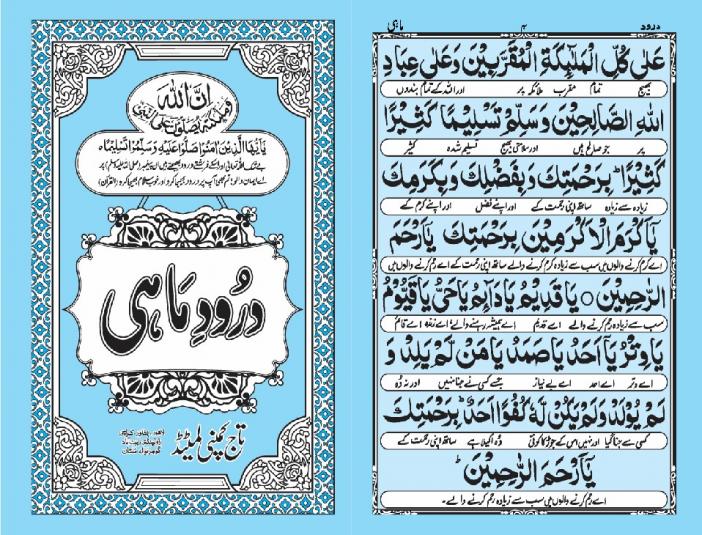 اِنَّ اللّٰهَ
وَمَلٰٓئِكَتَهٗ يُصَلُّوْنَ عَلَى النَّبِيِّ
يٰٓاَيُّهَا الَّذِيْنَ اٰمَنُوْا صَلُّوْا عَلَيْهِ وَسَلِّمُوْا تَسْلِيْمًا
درُودِ مَاہی
تاج کمپنی لمیٹڈ
درود ۴ ماہی
عَلٰى كُلِّ الْمَلٰٓئِكَةِ الْمُقَرَّبِيْنَ وَعَلٰى عِبَادِ
بھیج تمام مقرب ملائکہ پر اور اللہ کے تمام بندوں
اللّٰهِ الصَّالِحِيْنَ وَسَلِّمْ تَسْلِيْمًا كَثِيْرًا
پر جو صالح ہیں اور سلامتی بھیج تسلیم شدہ کثیر
كَثِيْرًا بِرَحْمَتِكَ وَبِفَضْلِكَ وَبِكَرَمِكَ
زیادہ سے زیادہ ساتھ اپنی رحمت کے اور اپنے فضل اور اپنے کرم کے
يَآ اَكْرَمَ الْاَكْرَمِيْنَ بِرَحْمَتِكَ يَآ اَرْحَمَ
اے کرم کرنے والوں میں سب سے زیادہ کرم کرنے والے ساتھ اپنی رحمت کے اے رحم کرنے والوں میں
الرّٰحِمِيْنَ ○ يَا قَدِيْمُ يَا دَآئِمُ يَا حَيُّ يَا قَيُّوْمُ
سب سے زیادہ رحم کرنے والے اے قدیم اے ہمیشہ رہنے والے اے زندہ اے قائم
يَا وِتْرُ يَآ اَحَدُ يَا صَمَدُ يَا مَنْ لَّمْ يَلِدْ وَ
اے وتر اے احد اے بے نیاز جسے کسی نے جنا نہیں اور نہ وہ
لَمْ يُوْلَدْ وَلَمْ يَكُنْ لَّهٗ كُفُوًا اَحَدٌ بِرَحْمَتِكَ
کسی سے جنا گیا اور نہیں اس کے جوڑ کا کوئی وہ اکیلا ہے ساتھ اپنی رحمت کے
يَآ اَرْحَمَ الرّٰحِمِيْنَ
اے رحم کرنے والوں میں سب سے زیادہ رحم کرنے والے۔